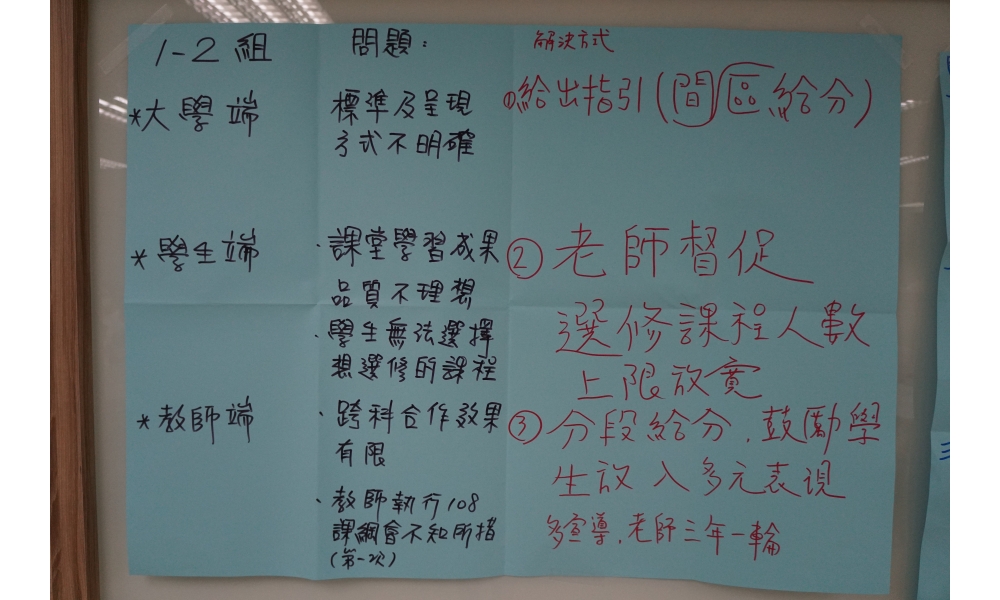 1-2組
問題：
解決方式
*大學端
標準及呈現
方式不明確
①給出指引(間區給分)
*學生端
·課堂學習成果
品質不理想
·學生無法選擇
想選修的課程
②老師督促
選修課程人數
上限放寬
*教師端
·跨科合作效果
有限
·教師執行108
課綱會不知所措
(第一次)
③分段給分，鼓勵學
生放入多元表現
多宣導，老師三年一輪